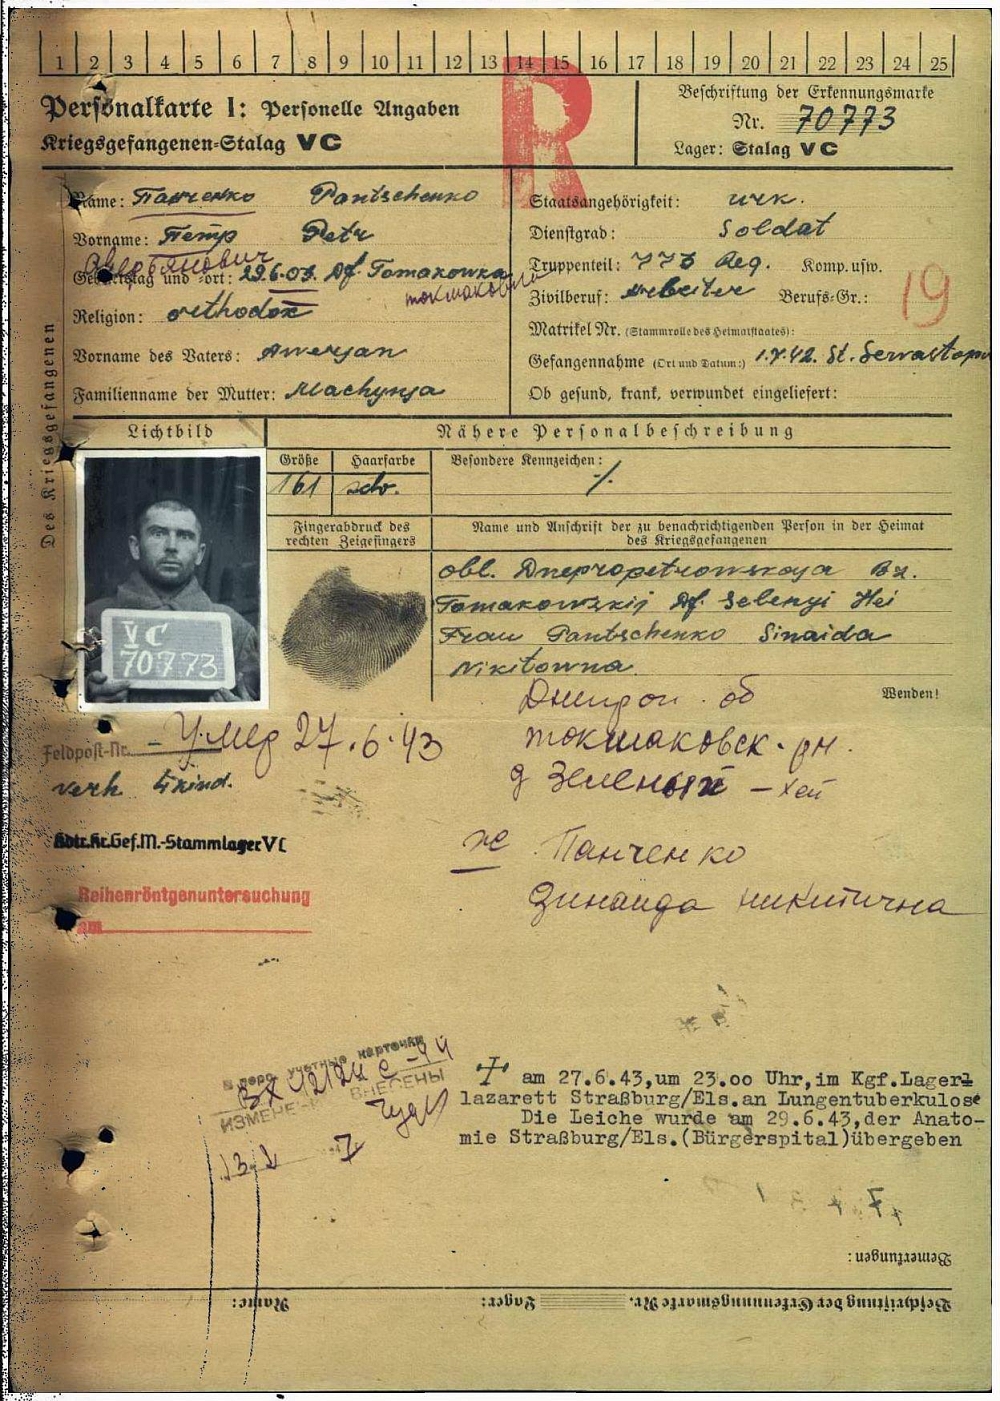 1 2 3 4 5 6 7 8 9 10 11 12 13 14 15 16 17 18 19 20 21 22 23 24 25
R
Personalkarte I: Personelle Angaben
Kriegsgefangenen-Stalag VC
Beschriftung der Erkennungsmarke
Nr. 70773
Lager: Stalag VC
Des Kriegsgefangenen
Name: Панченко Pantschenko
Vorname: Петр Petr
Аверьянович
Geburtstag und -ort: 29.6.03. Df. Tomakowka
Religion: orthodox
Vorname des Vaters: Awerjan
Familienname der Mutter: Machynja
Staatsangehörigkeit: ukr.
Dienstgrad: Soldat
Truppenteil: 773 Reg. Komp. usw.
Zivilberuf: Arbeiter Berufs-Gr.:
Matrikel Nr. (Stammrolle des Heimatstaates):
Gefangennahme (Ort und Datum:) 1.7.42. St. Sewastopo
Ob gesund, krank, verwundet eingeliefert:
19
Lichtbild
Nähere Personalbeschreibung
Größe Haarfarbe Besondere Kennzeichen:
161 schw. ./.
Fingerabdruck des
rechten Zeigefingers
Name und Anschrift der zu benachrichtigenden Person in der Heimat
des Kriegsgefangenen
obl. Dnepropetrowskaya Bz.
Tomakowskij Df. Selenyi Hei
Frau Pantschenko Sinaida
Nikitowna
Wenden!
VC
70773
Feldpost-Nr.
Умер 27.6.43
verh 4 kind.
Kdtr.Kr.Gef.M.-Stammlager VC
Reihenröntgenuntersuchung
am
Днипроп. об
токмаковск. рн.
д Зеленый – Хей
ж Панченко
Зинаида никитична
учетные карточки
ИЗМЕНЕНИЯ ВНЕСЕНЫ
am 27.6.43,um 23.oo Uhr,im Kgf.Lager-
lazarett Straßburg/Els.an Lungentuberkulose
Die Leiche wurde am 29.6.43,der Anato-
mie Straßburg/Els.(Bürgerspital)übergeben
Bemerkungen:
Name: Lager: Beschriftung der Erkennungsmarke Nr.